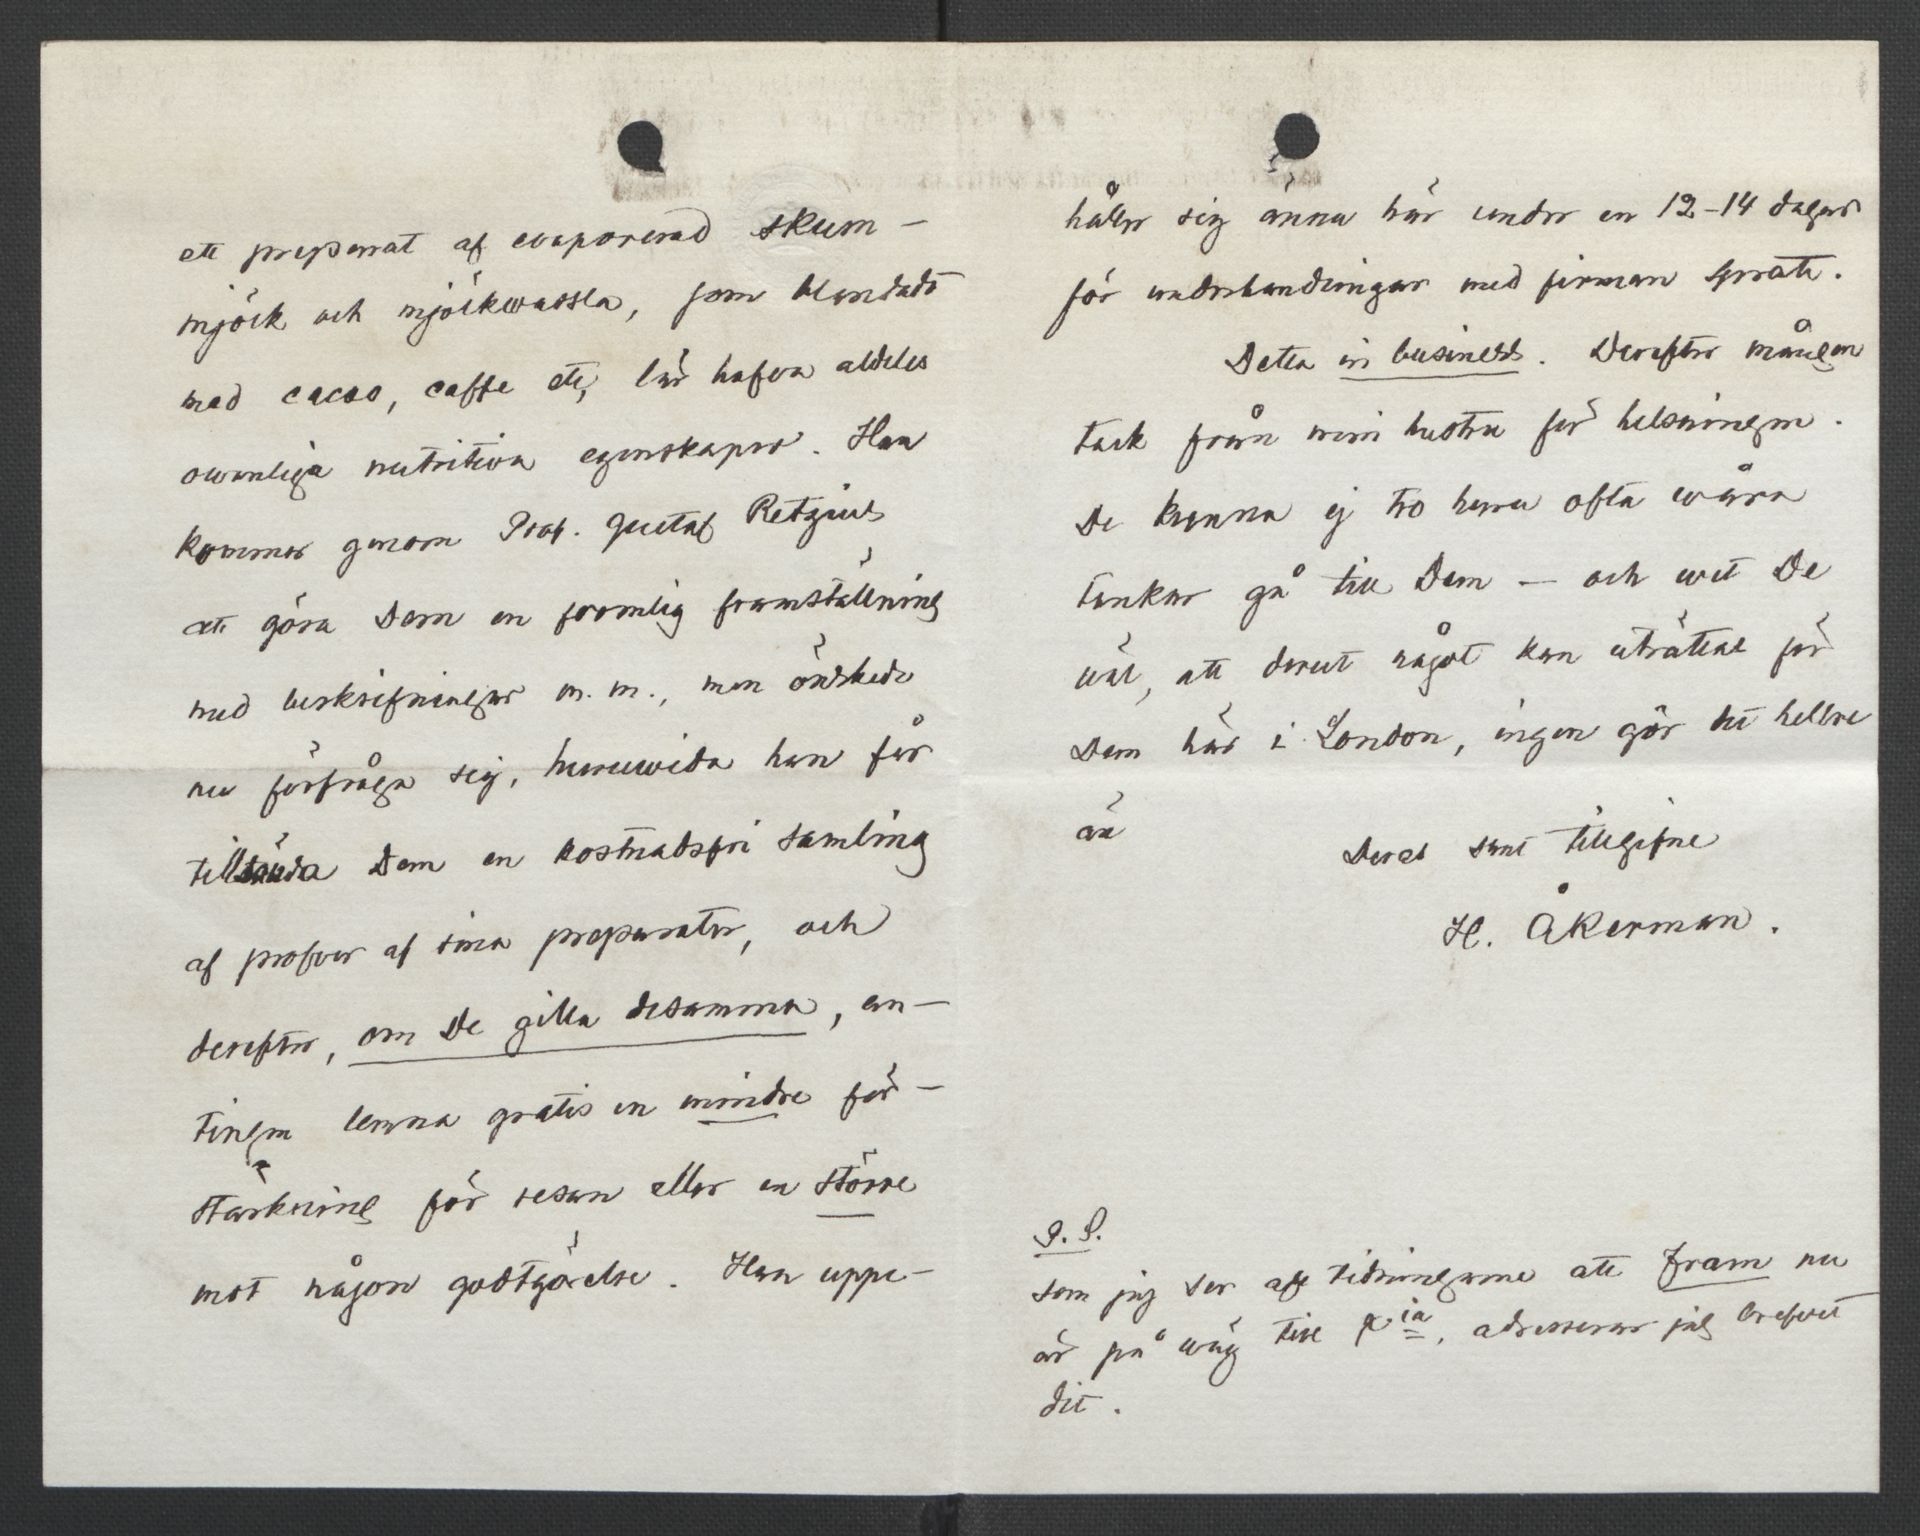 ett preparat af evaporerad skum-
mjölk och mjölkwassla, som blandadt
med cacao, caffe etc, lär hafva aldeles
owanliga nutritiva egenskaper. Han
kommer genom Prof. Gustaf Retzius
att göra Dem en formlig framställning
med beskrifningar m. m., men önskade
nu förfråga sig, huruwida han får
tillsända Dem en kostnadsfri samling
af profver af sina preparater, och
derefter, om De gilla desamma, an-
tingen lemna gratis en mindre för-
stärkning för resan eller en större
mot någon godtgörelse. Han uppe-
håller sig ännu här under en 12-14 dagar
för underhandlingar med firman Spratt.
Detta in business. Derefter mången
tack från min hustru för helsningen.
De kunna ej tro huru ofta wåra
tankar gå till Dem — och wet De
wäl, att derest något kan uträttas för
Dem här i London, ingen gör det hellre
än
Deras sant tillgifne
H. Åkerman.
P. S.
Som jag ser af tidningarne att Fram nu
är på wäg till Xia, adresserar jag brefvet
dit.